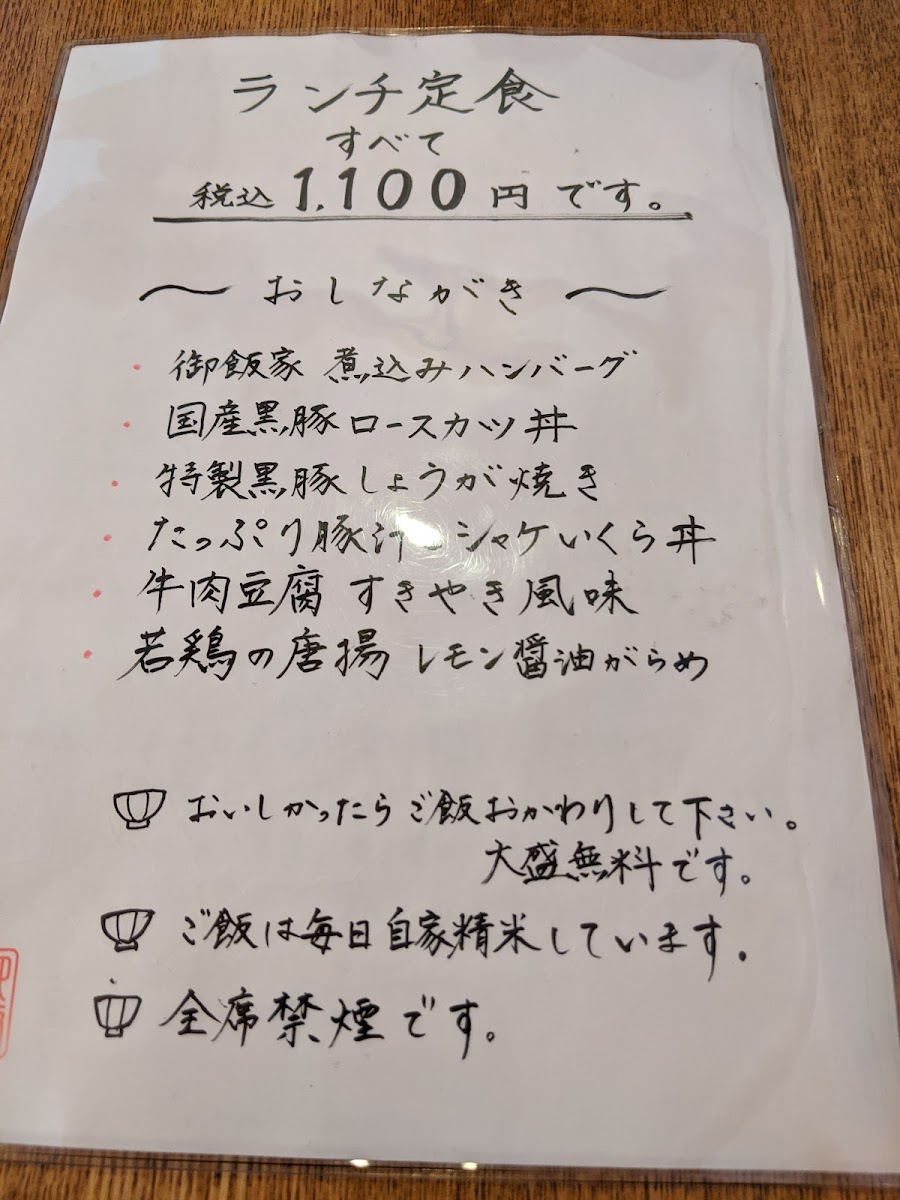 ランチ定食
すべて
税込 1,100円です。
〜 おしながき 〜
・御飯家 煮込みハンバーグ
・国産黒豚ロースカツ丼
・特製黒豚しょうが焼き
・たっぷり豚汁 シャケいくら丼
・牛肉豆腐 すきやき風味
・若鶏の唐揚 レモン醤油がらめ
おいしかったらご飯おかわりして下さい。
大盛無料です。
ご飯は毎日自家精米しています。
全席禁煙です。